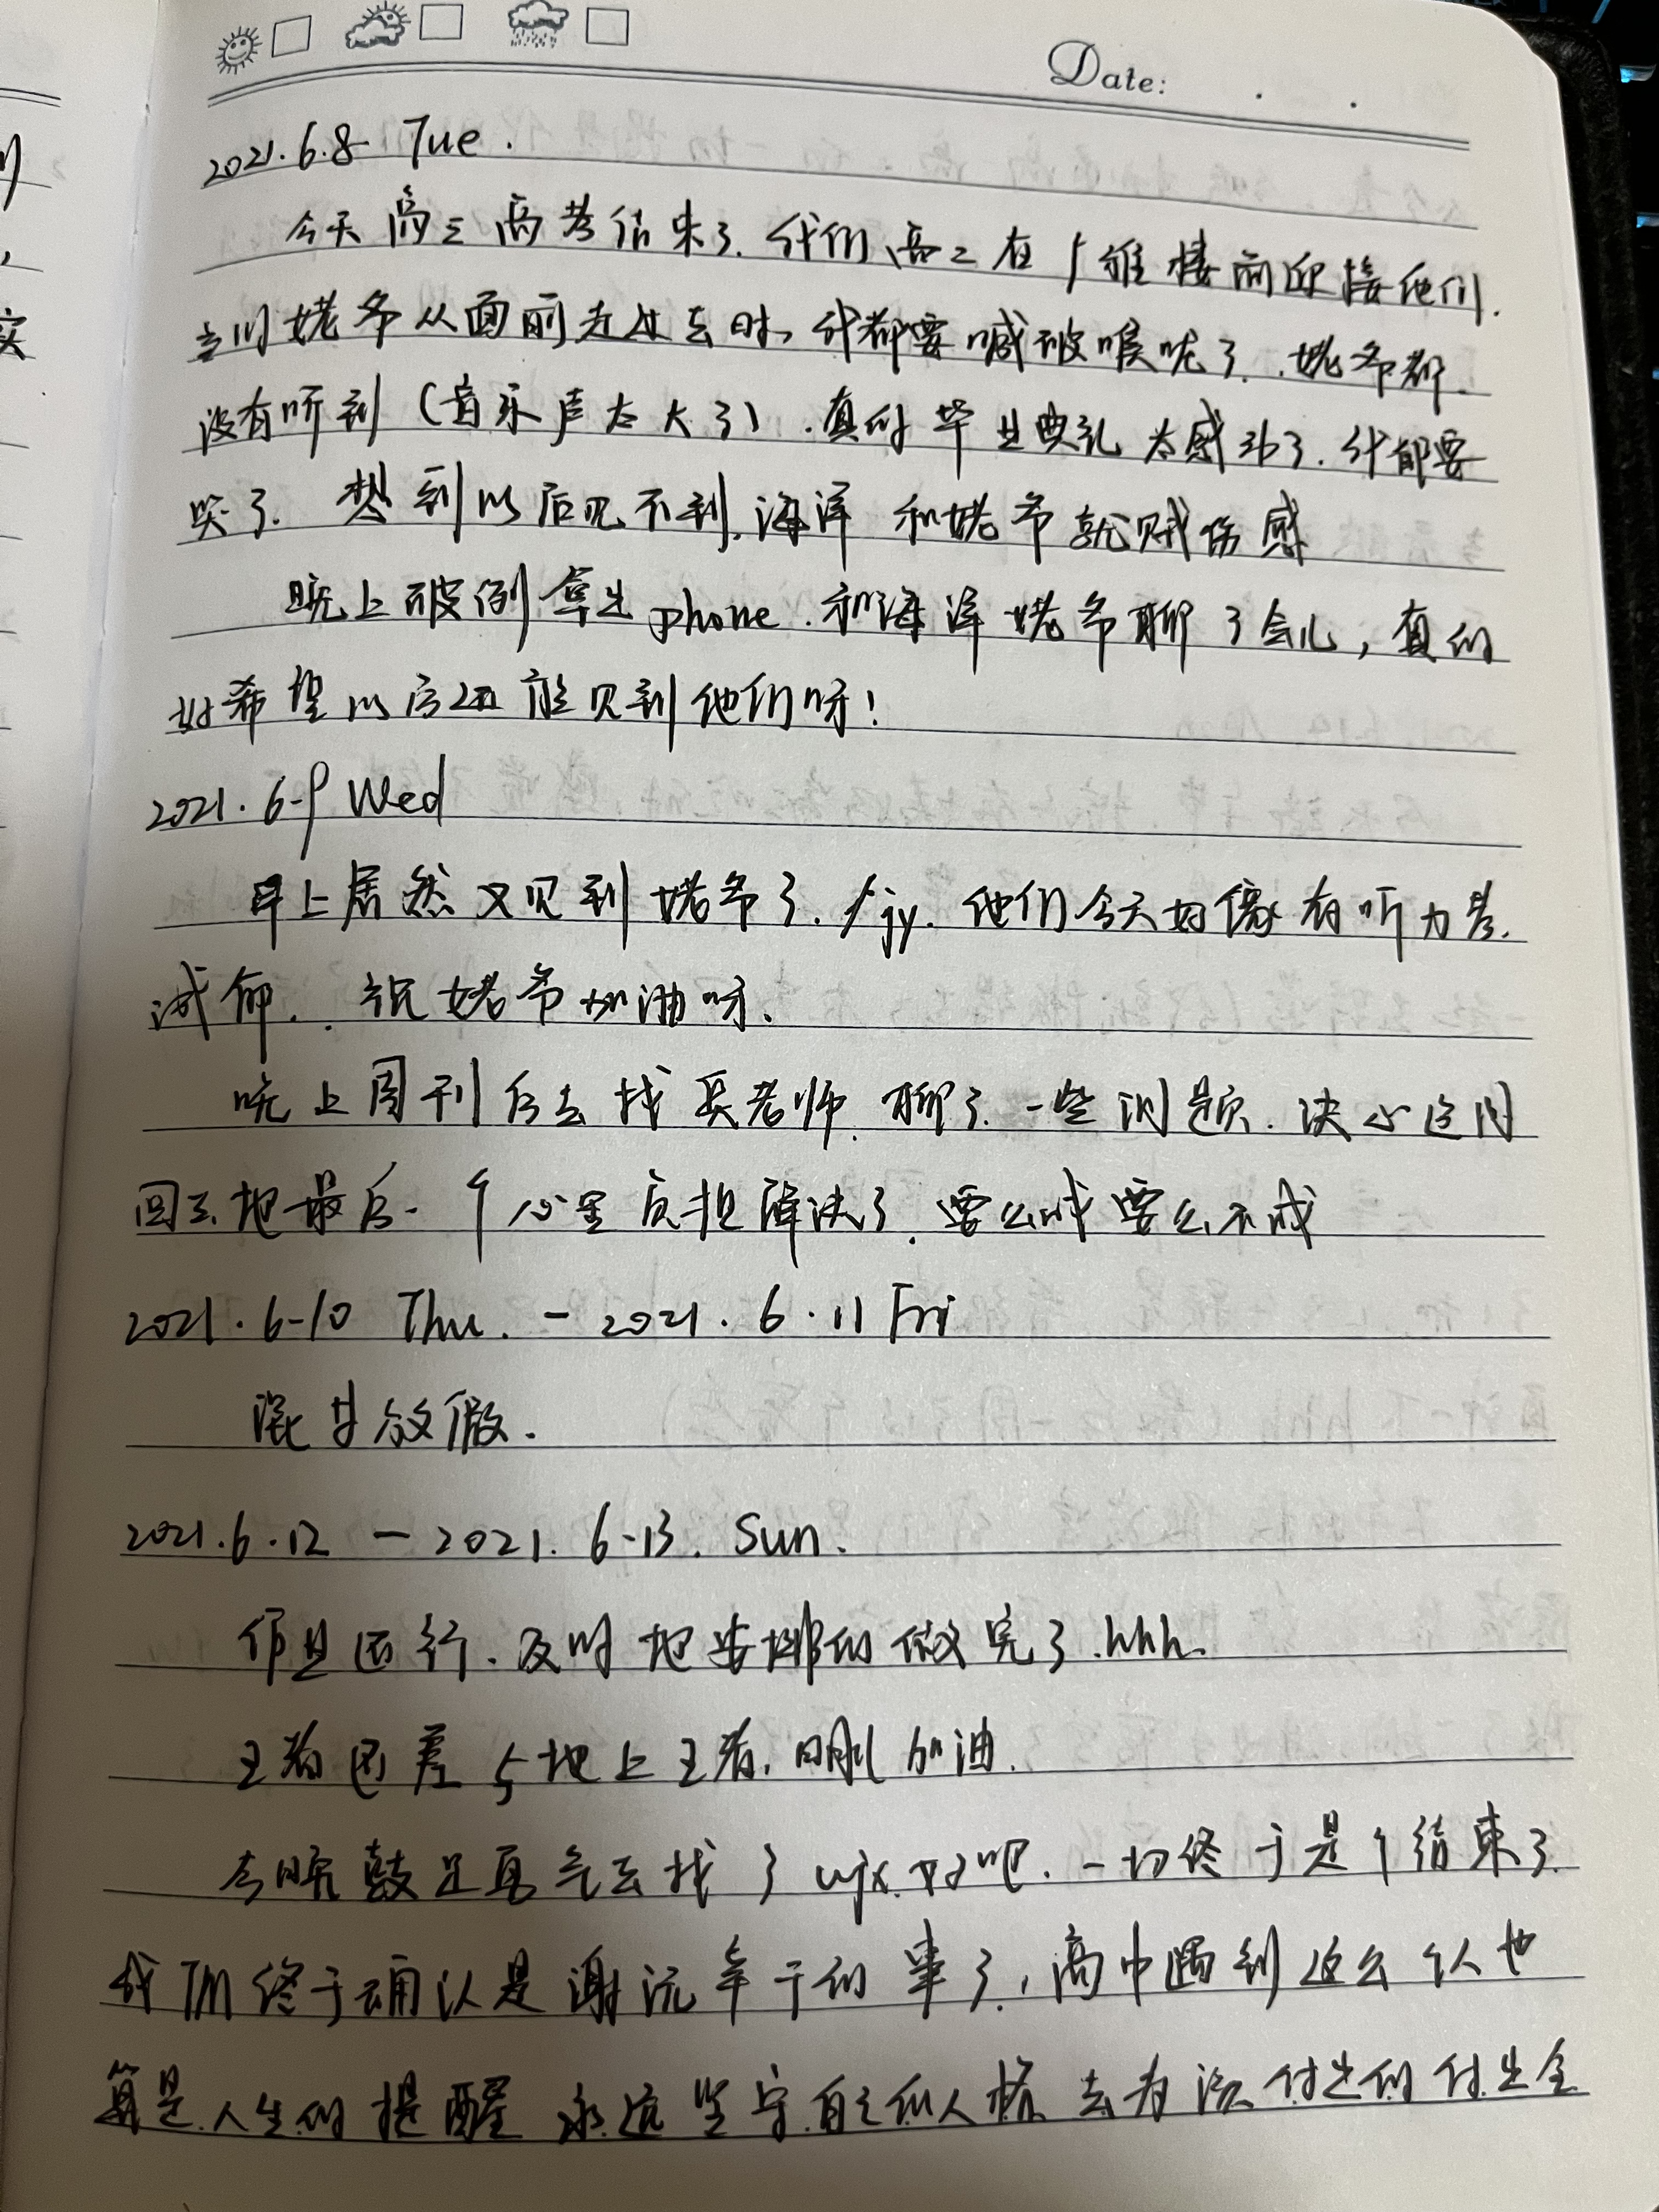 Date:
2021.6.8 Tue.
今天高三高考结束了.我们高二在维楼前迎接他们.
当姥爷从面前走过去时,我都要喊破喉咙了.姥爷都
没有听到(音乐声太大了).真的毕业典礼太感动了.我都要
哭了.想到以后见不到海洋和姥爷就贼伤感
晚上破例拿出phone.和海洋姥爷聊了会儿,真的
好希望以后还能见到他们呀!
2021.6.9 Wed
早上居然又见到姥爷了.jy.他们今天好像有听力考
试.祝姥爷加油呀.
晚上周刊后去找吴老师聊了一些问题.决心这周
回去把最后一个心里负担解决了.要么成要么不成
2021.6.10 Thu. - 2021.6.11 Fri
混日放假.
2021.6.12 - 2021.6.13. Sun.
作业还行.及时地安排的做完了.hhh.
王者因差5地上王者.明刷加油.
今晚鼓足勇气去找了wjx.好吧.一切终于是个结束了.
我们终于确认是谢沅干的事了,高中遇到这么个人也
算是人生的提醒 永远坚守自己的人格 去为该付出的付出全